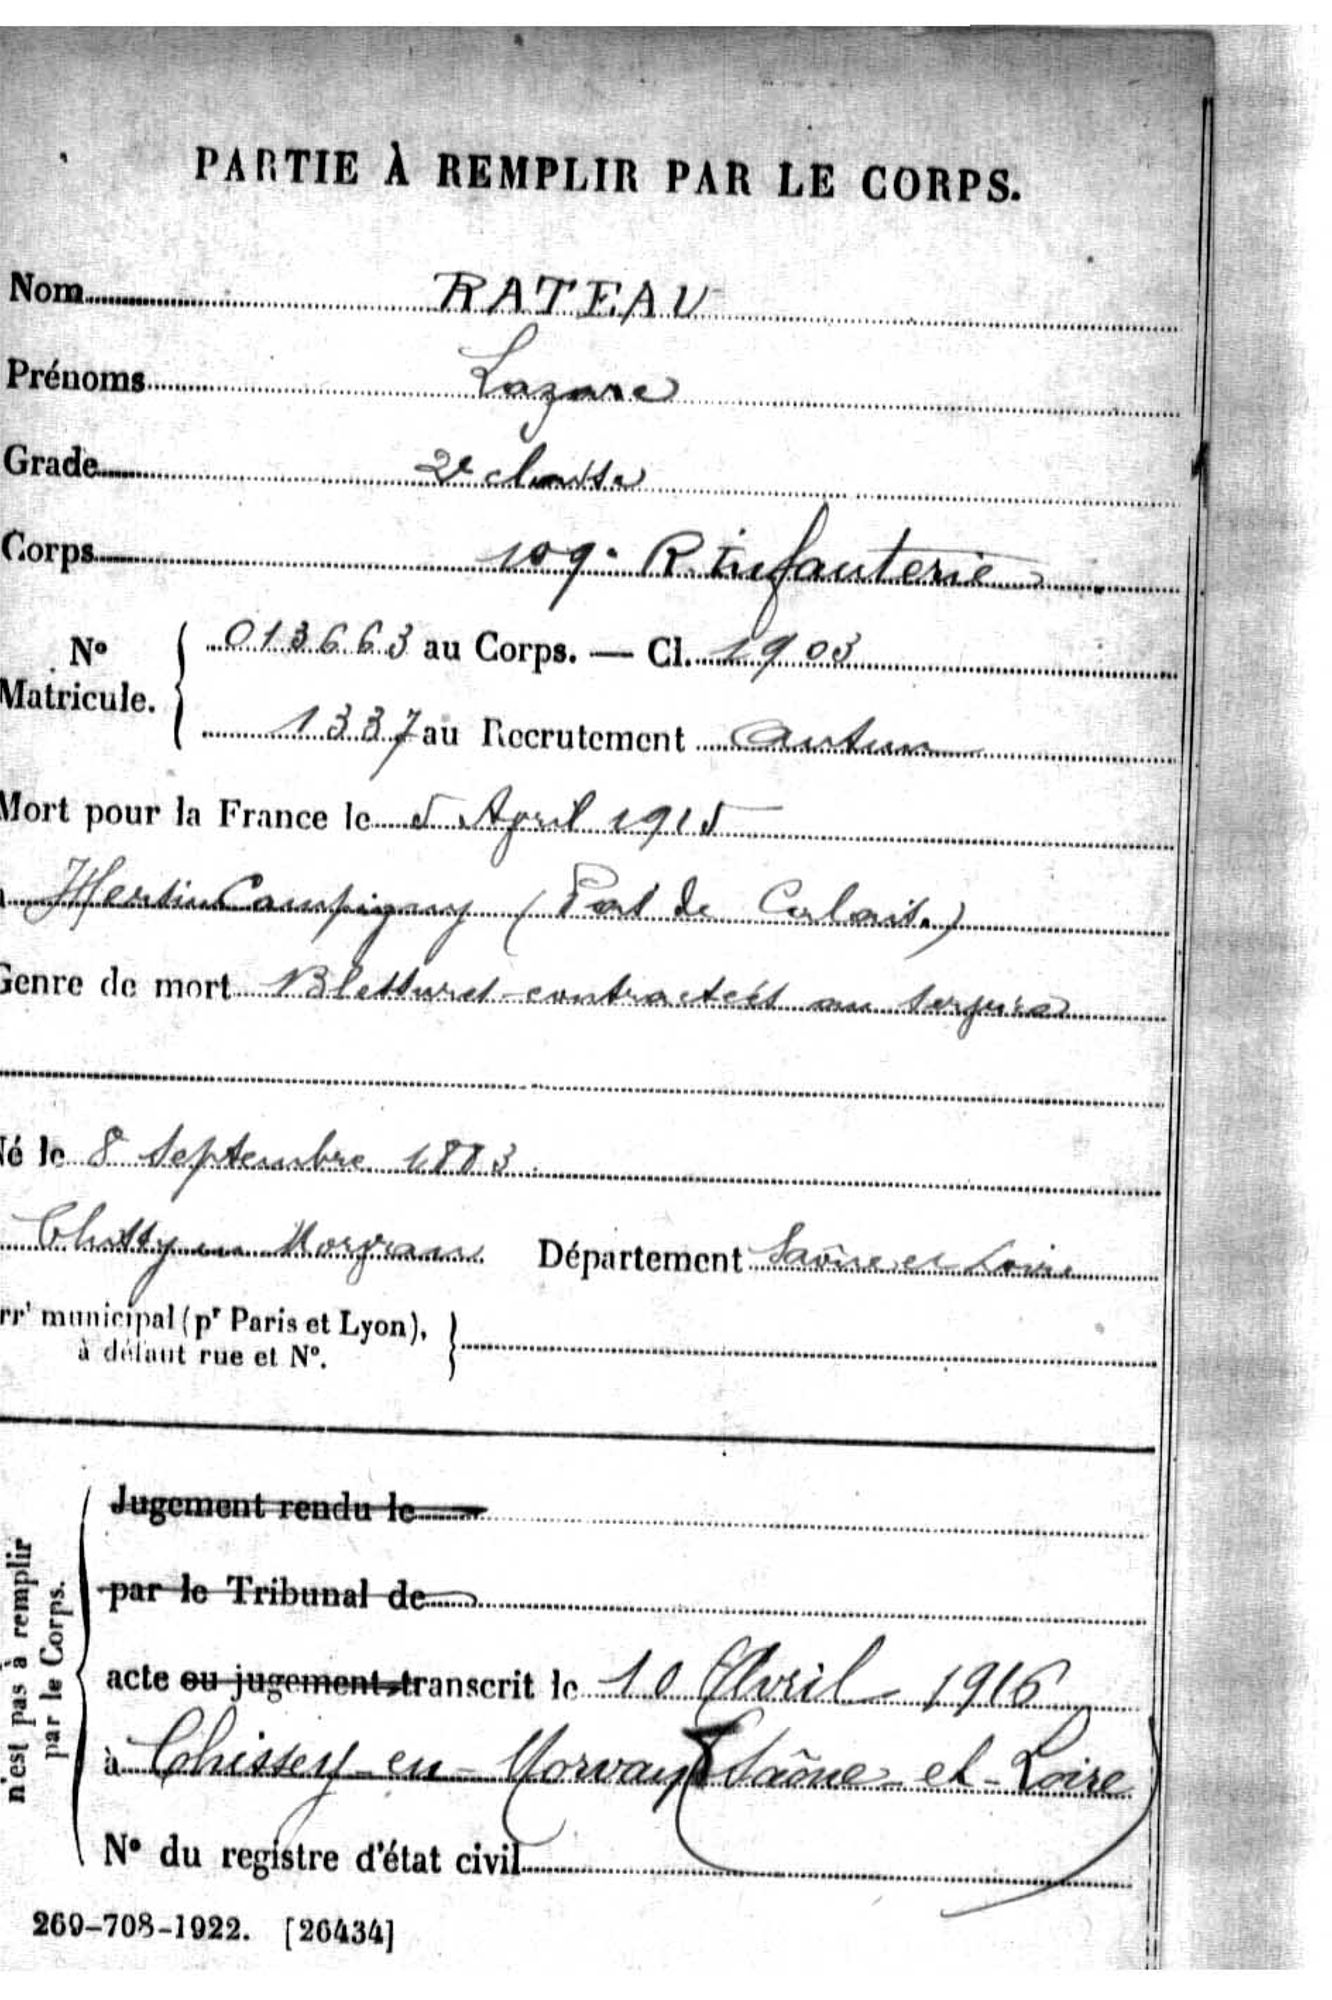 PARTIE À REMPLIR PAR LE CORPS.
Nom RATEAU
Prénoms Lazare
Grade 2e classe
Corps 109e R. Infanterie
No Matricule. 013663 au Corps. — Cl. 1903
1337 au Recrutement Autun
Mort pour la France le 5 April 1915
Hersin Campigny (Pas de Calais.)
Genre de mort Blessures contractées au service
Né le 8 septembre 1883
Chissy en Morvan Département Saône et Loire
rrt municipal (pr Paris et Lyon), à défaut rue et No.
n'est pas à remplir par le Corps.
Jugement rendu le
par le Tribunal de
acte ou jugement transcrit le 10 Avril 1916
à Chissey-en-Morvan (Saône-et-Loire)
No du registre d'état civil
269-708-1922. [26434]